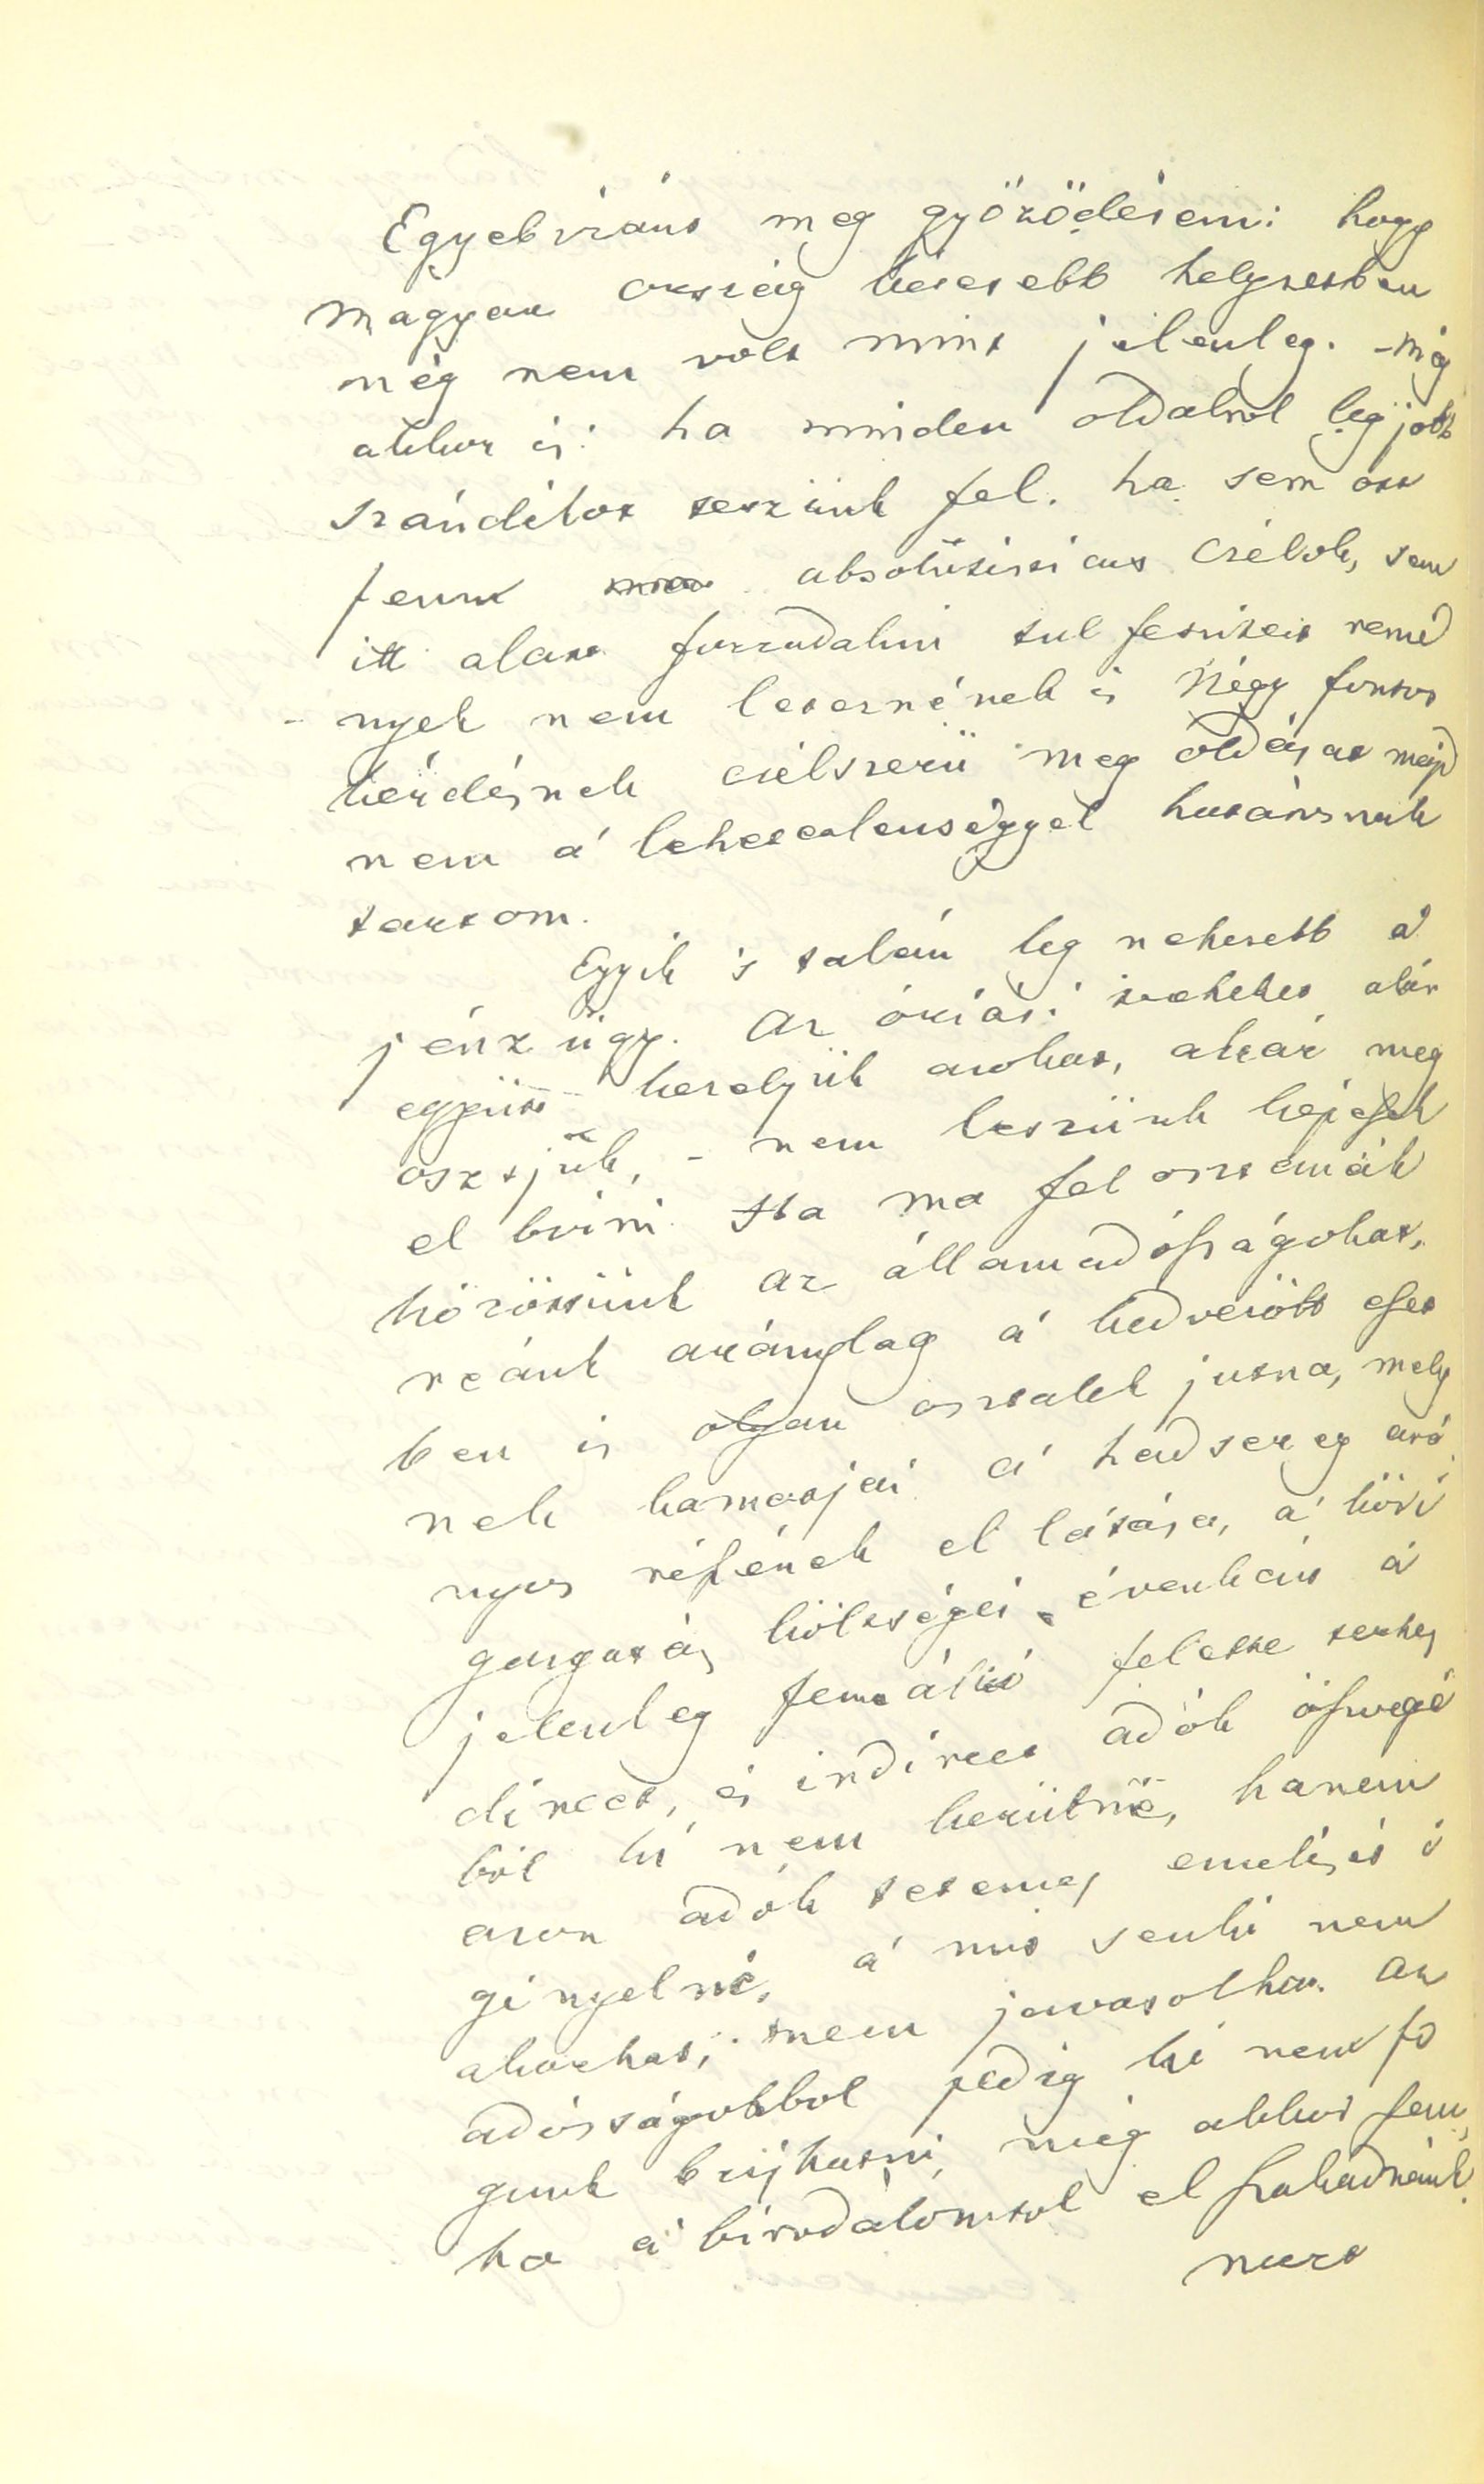 Egyebiránt meg győződésem: hogy
Magyar ország kényesebb helyzetben
még nem volt mint jelenleg. – még
akkor is: ha minden oldalról legjobb
szándékot teszünk fel. ha sem ott
fenn absolutisticus czélok, sem
itt alant forradalmi túl feszített remé
nyek nem léteznének is Négy fontos
kérdésnek czélszerü meg oldását majd
nem a' lehetetlenséggel határosnak
tartom.
Egyik 's talán leg nehezebb a'
pénz ügy. Az óriási terheket akár
együtt kezeljük azokat, akár meg
osztjuk, – nem leszünk képesek
el birni. Ha ma fel osztanák
közöttünk az államadósságokat,
reánk aránylag a' kedvezőbb eset
ben is olyan osztalék jutna, mely
nek kamatjai a' hadsereg ará
nyos részének el látása, a' köz i
gazgatás költségei évenként a'
jelenleg fennálló felette terhes
direct, és indirect adók összegé
ből ki nem kerülne, hanem
azon adók tetemes emelését i
gényelné, a' mit senki nem
akarhat, nem javasolhat. Az
adósságokból pedig ki nem fo
gunk bújhatni, még akkor sem,
ha a' birodalomtól el szakadnánk.
mert